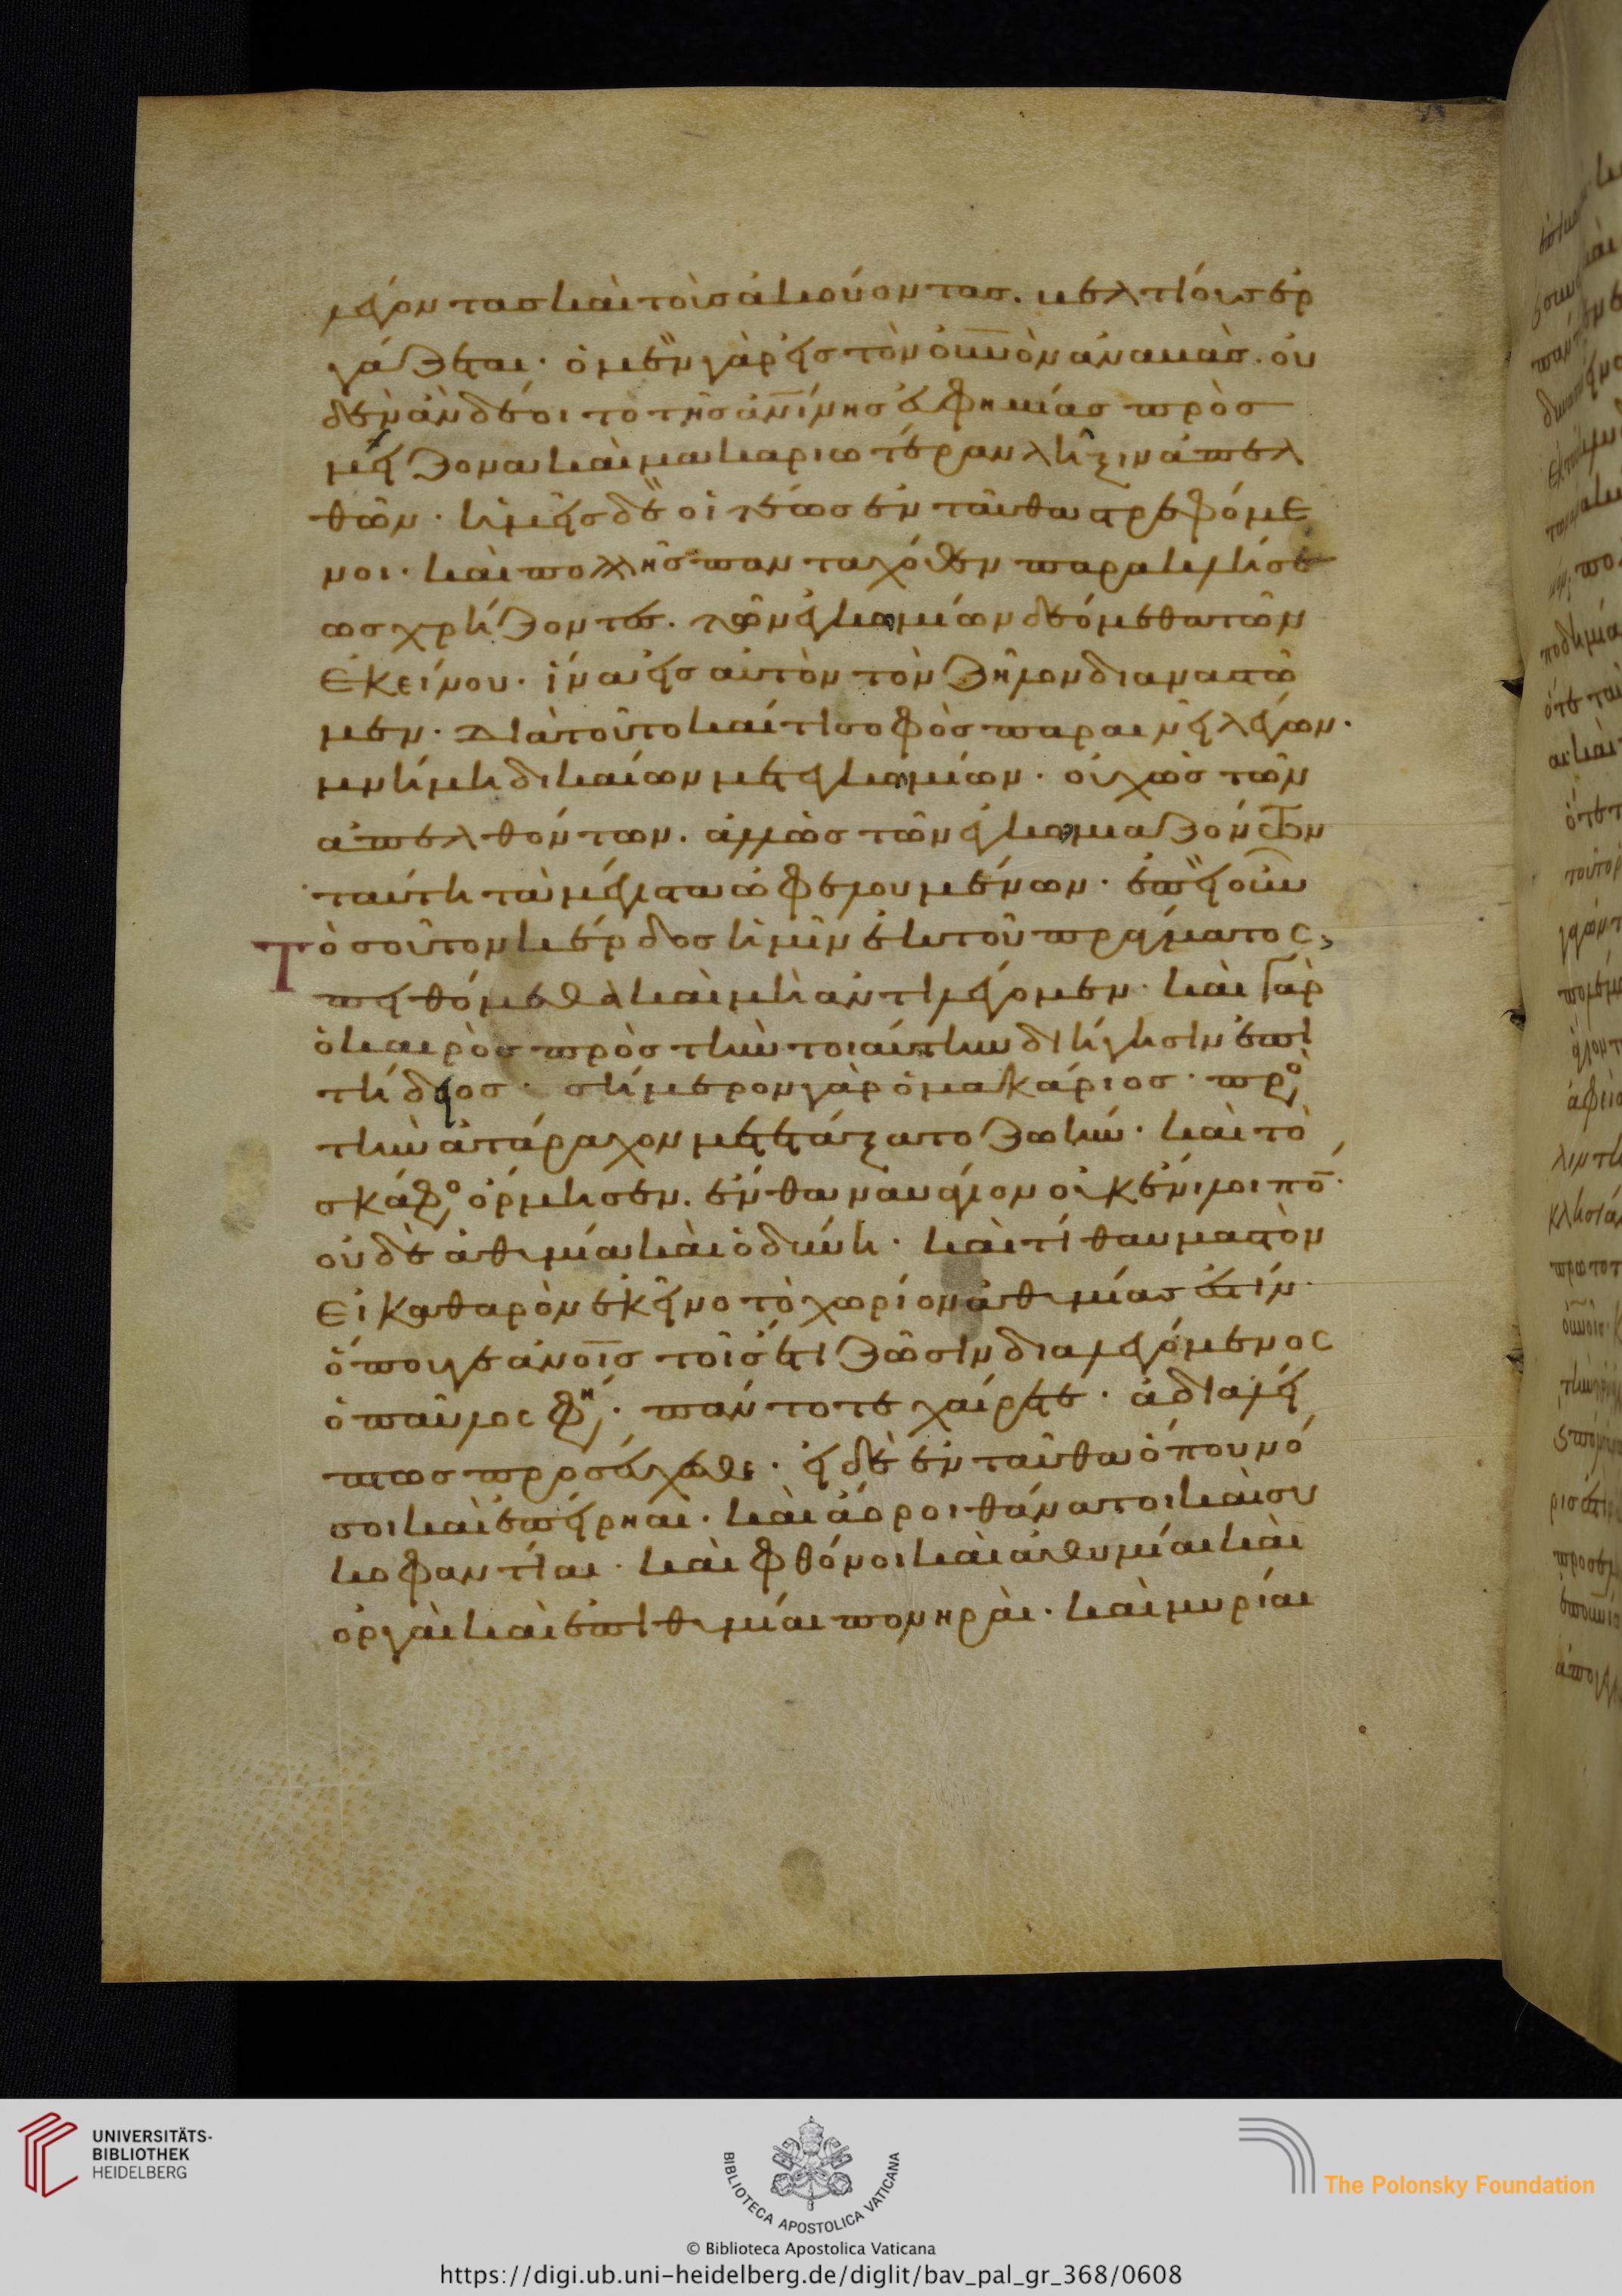 λέγοντας καὶ τοὺς ἀκούοντας. βελτίους ἐρ
γάζεται· ὁ μὲν γὰρ εἰς τὸν ο̅υ̅ν̅ὸν ἀναβὰς. οὐ
δὲν ἂν δέοιτο τῆς ἀν̅ίνης εὐφημίας πρὸς
μείζονα καὶ μακαριωτέραν λῆξιν ἀπελ
θὼν· ἡμεῖς δὲ οἱ τέως ἐνταῦθα στρεφόμε
νοι· καὶ πολλῆς πανταχόθεν παρακλήσε
ως χρήζοντες. τῶν ἐγκωμίων δεόμεθα τῶν
ἐκείνου· ἵνα εἰς αὐτὸν τὸν ζῆλον διαναστῶ
μεν· Διὰ τοῦτο καί τις σοφὸς παραινεῖ λέγων·
μνήμη δικαίων μετ ἐγκωμίων· οὐχ ὡς τῶν
ἀπελθόντων. ἀλλ ὡς τῶν ἐγκωμιαζόντων
ταύτη τὰ μέγιστα ὠφελουμένων· ἐπεὶ οὖν
Τοσοῦτον κέρδος ἡμῖν ἐκ τοῦ πράγματος,
πειθόμεθα καὶ μὴ ἀντιλέγομεν· καὶ γὰρ
ὁ καιρὸς πρὸς τὴν τοιαύτην διήγησιν ἐπι
τήδειος· σήμερον γὰρ ὁ μακάριος· πρὸ
τὴν ἀτάραχον μετετάξατο ζωήν· καὶ τὸ
σκάφο ὅρμησεν. ἔνθα ναυάγιον οὐκ ἔνι λοιπό̅·
οὐδὲ ἀθυμία καὶ ὀδύνη· καὶ τί θαυμαστὸν
εἰ καθαρὸν ἐκεῖνο τὸ χωρίον ἀθυμίας ἐστίν·
ὅπου γε ἀν̅οις τοῖς ἔτι ζῶσιν διαλεγόμενος
ὁ παῦλος φη· πάντοτε χαίρετε· ἀδιαλεί
πτως προσεύχεσθε· εἰ δὲ ἐνταῦθα ὅπου νό
σοι καὶ ἐπήρειαι· καὶ ἄωροι θάνατοι καὶ συ
κοφαντίαι· καὶ φθόνοι καὶ ἀθυμίαι καὶ
ὀργαὶ καὶ ἐπιθυμίαι πονηραὶ· καὶ μυρίαι
UNIVERSITÄTS-
BIBLIOTHEK
HEIDELBERG
BIBLIOTECA APOSTOLICA VATICANA
The Polonsky Foundation
© Biblioteca Apostolica Vaticana
https://digi.ub.uni-heidelberg.de/diglit/bav_pal_gr_368/0608